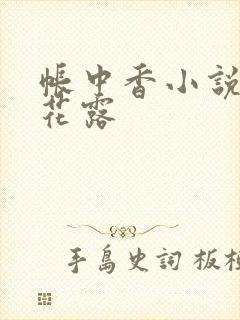 帳中香小說
花露
手島史詞 板橋